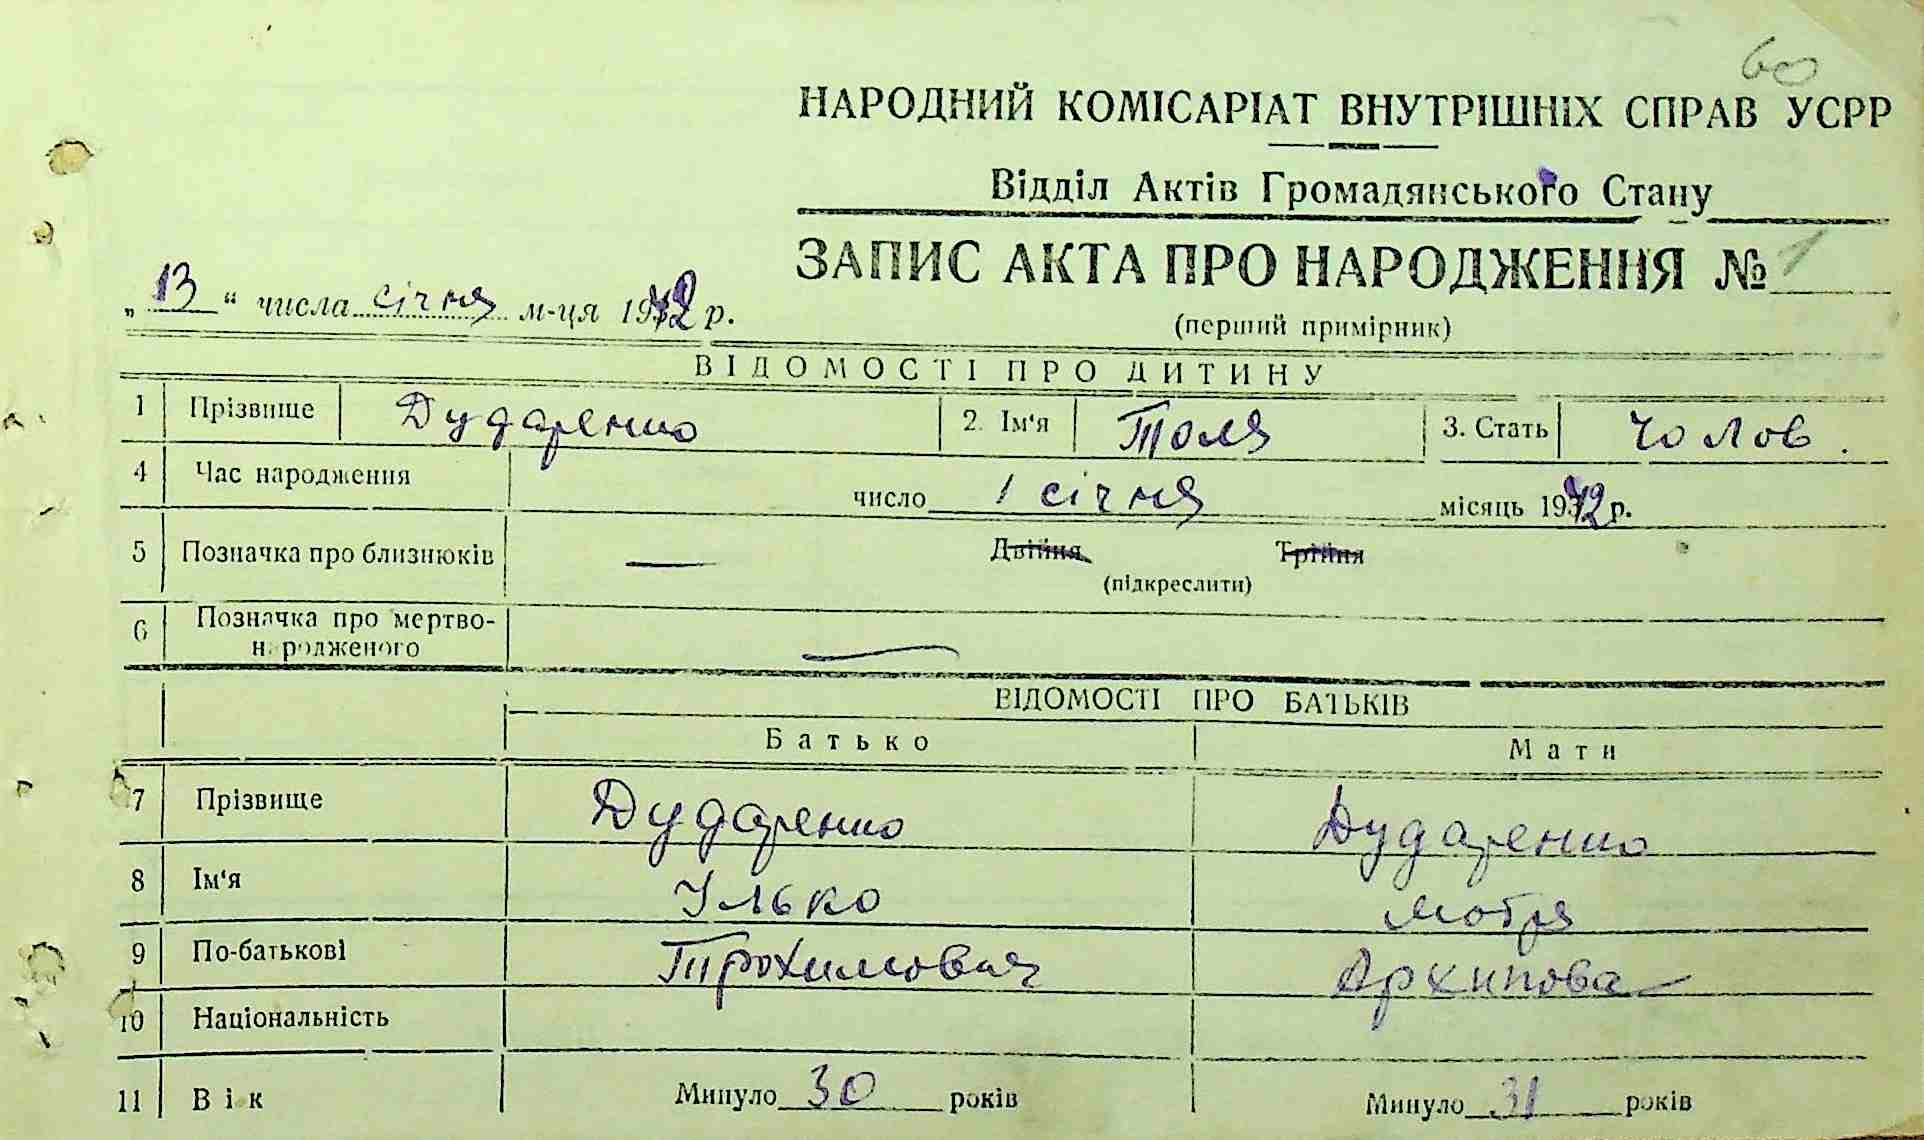 60
НАРОДНИЙ КОМІСАРІАТ ВНУТРІШНІХ СПРАВ УСРР
Відділ Актів Громадянського Стану
ЗАПИС АКТА ПРО НАРОДЖЕННЯ № 1
„13“ числа січня м-ця 1942 р.
(перший примірник)
ВІДОМОСТІ ПРО ДИТИНУ
1 Прізвище Дударенко 2. Ім‘я Толя 3. Стать Чолов.
4 Час народження число 1 січня місяць 1942 р.
5 Позначка про близнюків — Двійня Трійня
(підкреслити)
6 Позначка про мертво-
народженого —
ВІДОМОСТІ ПРО БАТЬКІВ
Батько Мати
7 Прізвище Дударенко Дударенко
8 Ім‘я Ілько Мотря
9 По-батькові Трохимович Архипова
10 Національність
11 Вік Минуло 30 років Минуло 31 років